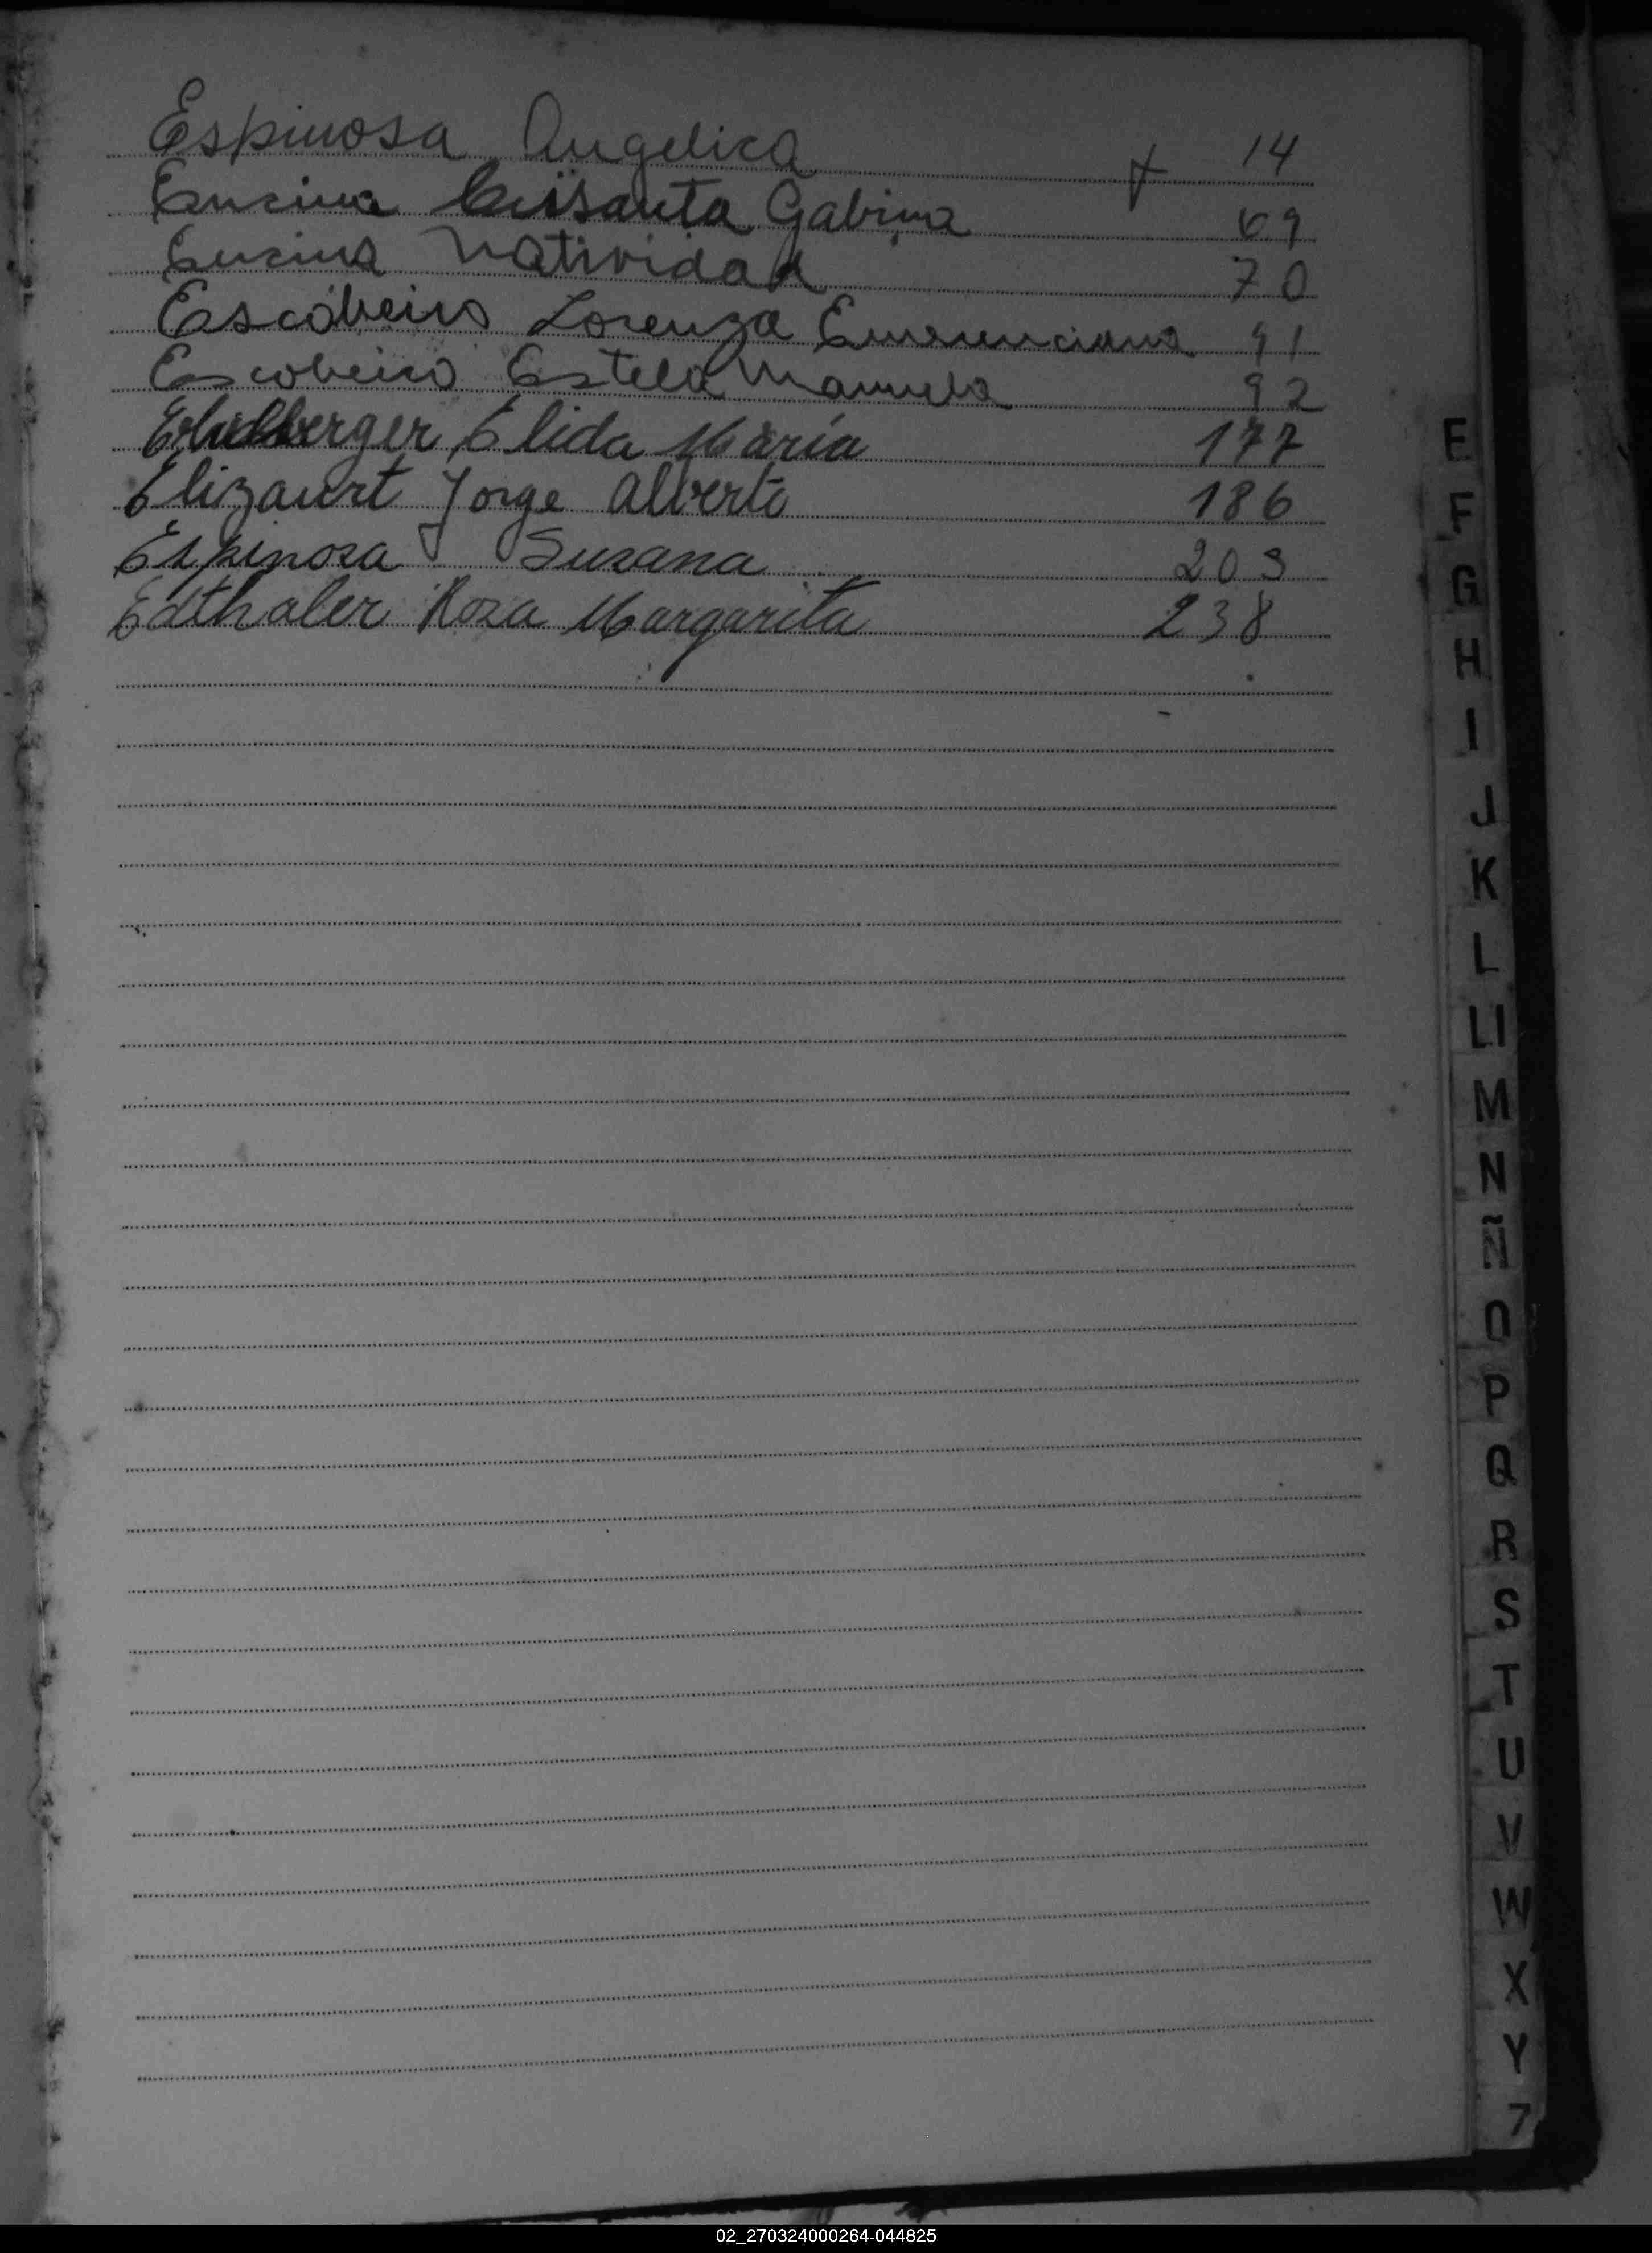 Espinosa Angelica + 14
Encina Crisanta Gabina 69
Encina Natividad 70
Escobeiro Lorenza Emerenciana 91
Escobeiro Estela Manuela 92
Elida María 177
Elizaurt Jorge Alberto 186
Espinosa Susana 203
Edthaler Rosa Margarita 238
E
F
G
H
I
J
K
L
Ll
M
N
Ñ
O
P
Q
R
S
T
U
V
W
X
Y
Z
02_270324000264-044825